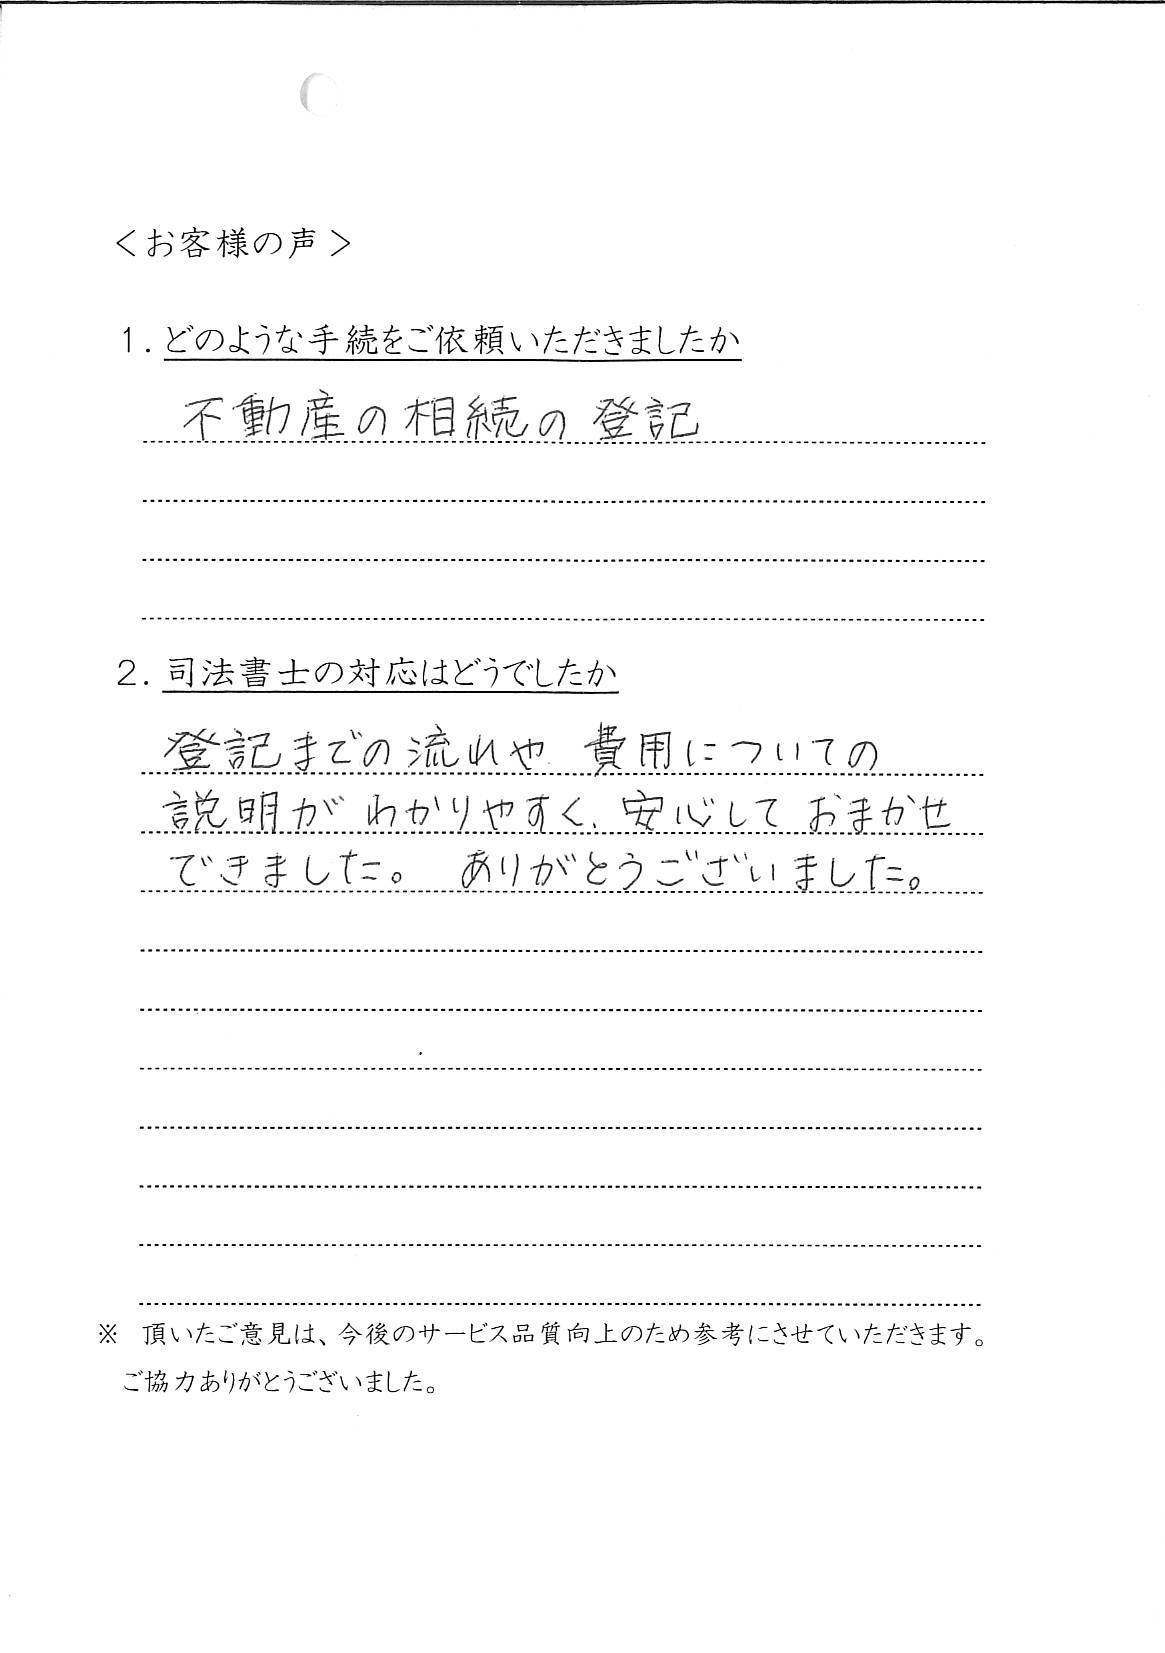 ＜お客様の声＞
１．どのような手続をご依頼いただきましたか
不動産の相続の登記
２．司法書士の対応はどうでしたか
登記までの流れや 費用についての
説明が わかりやすく、安心して おまかせ
できました。 ありがとうございました。
※ 頂いたご意見は、今後のサービス品質向上のため参考にさせていただきます。
ご協力ありがとうございました。